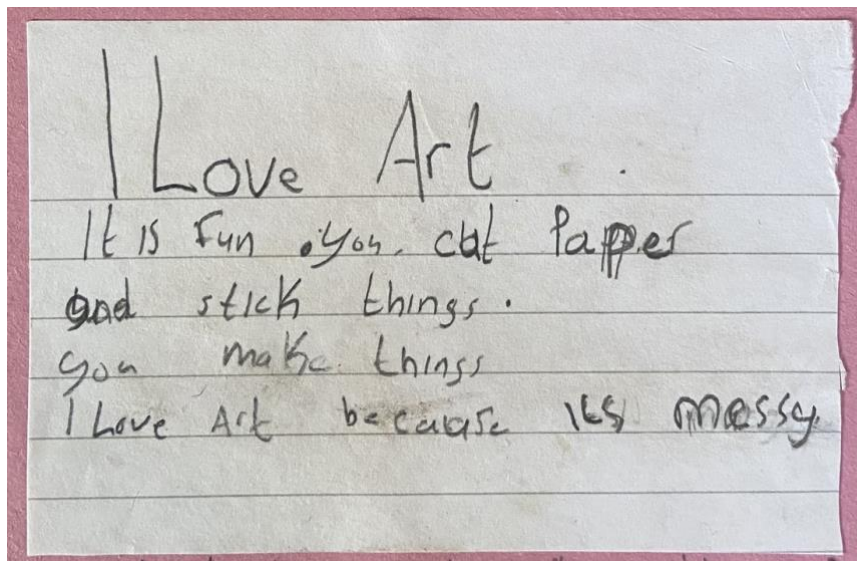 I Love Art
It is fun . you. cut Papper
and stick things.
you make things
I Love Art because its messy